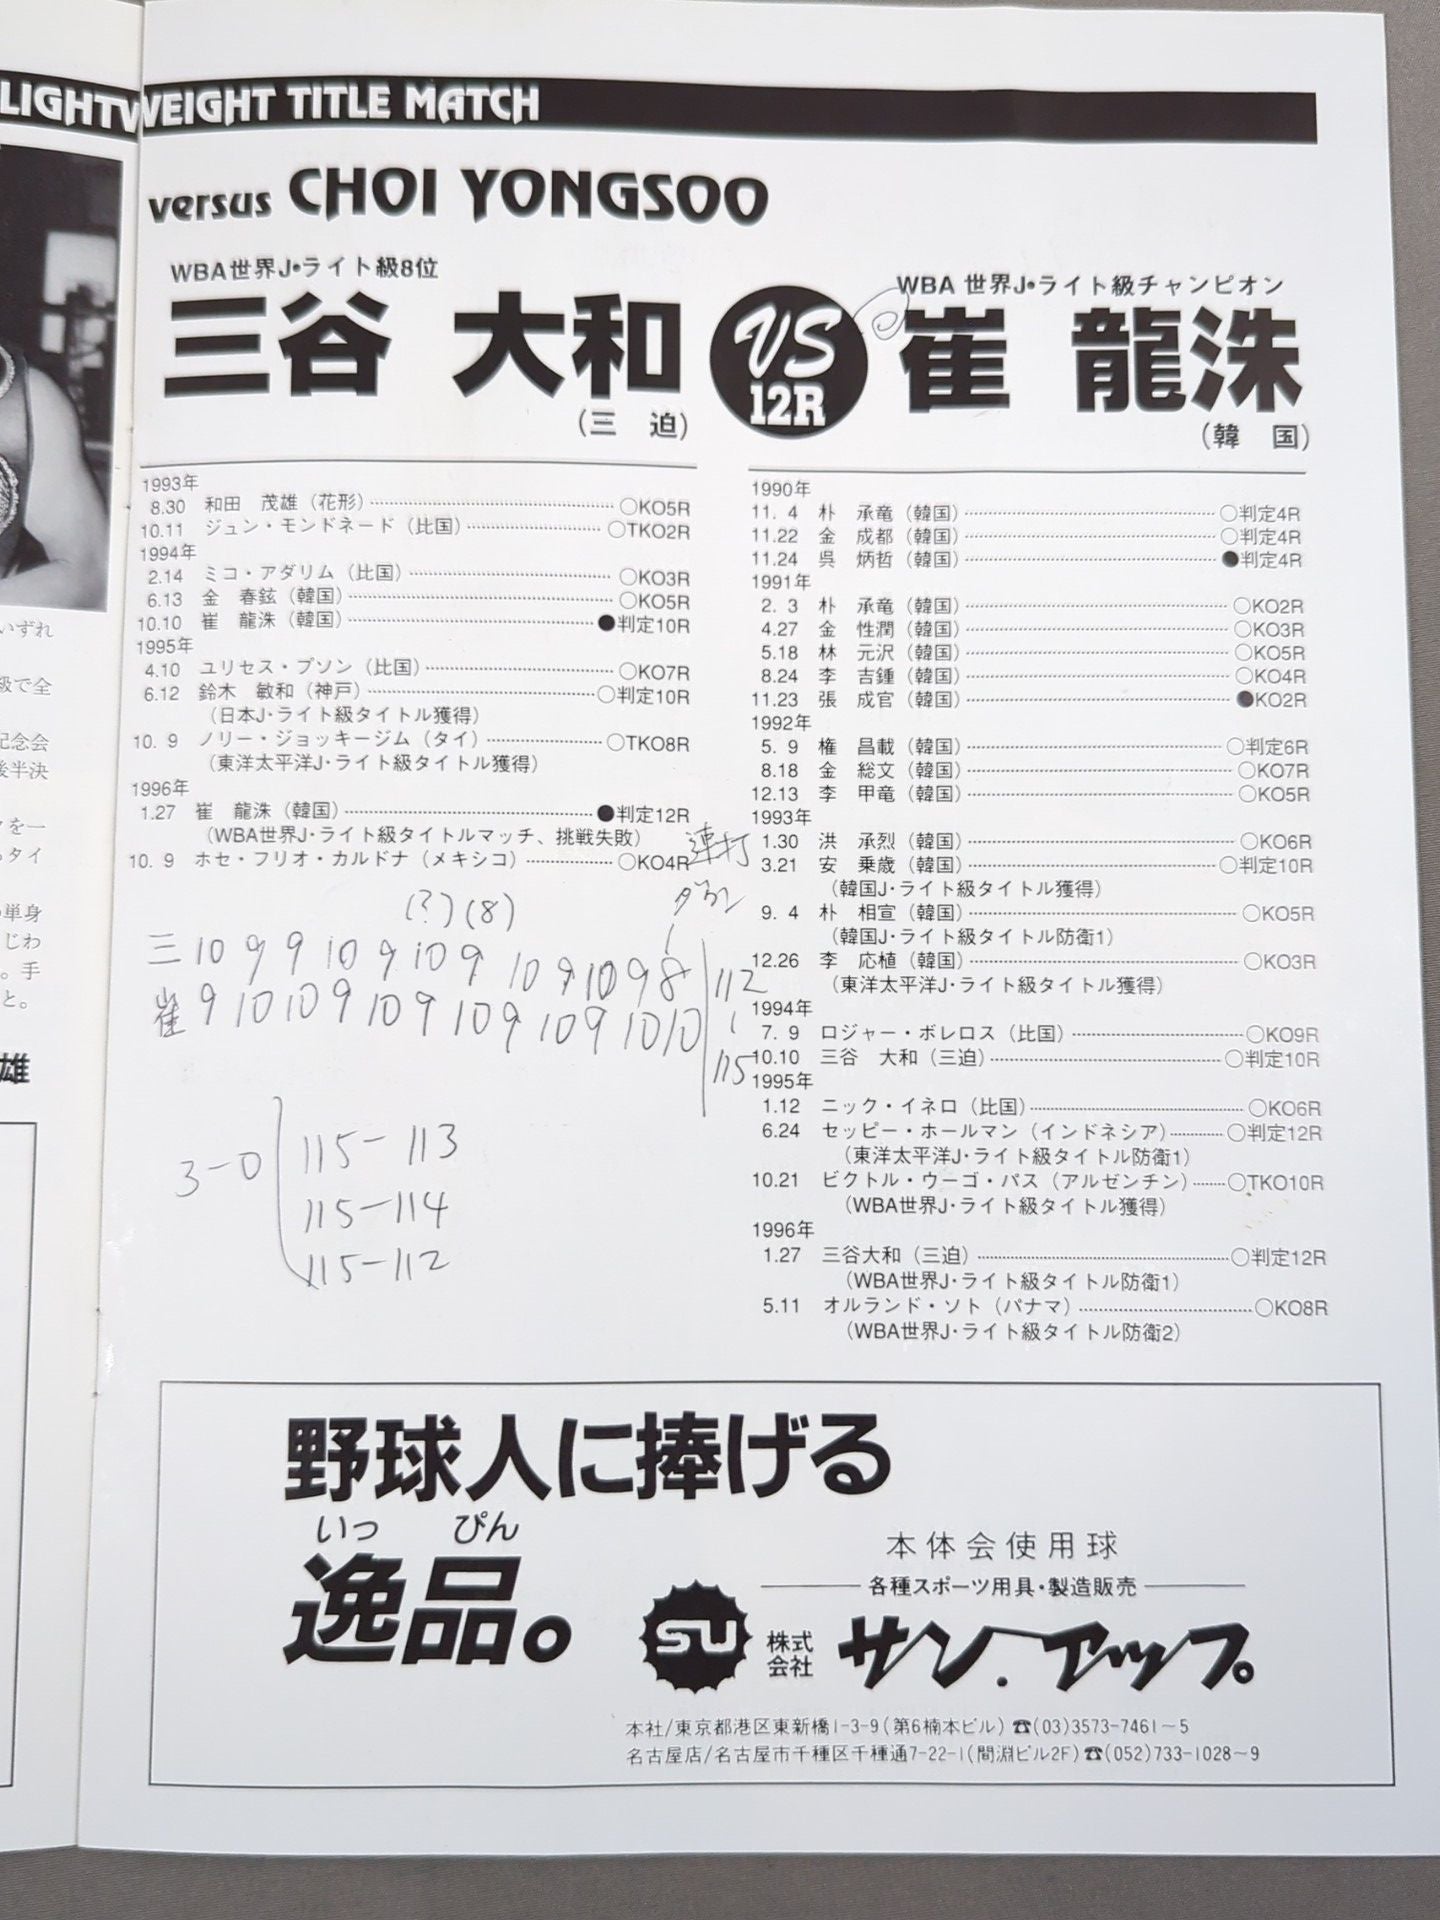 LIGHTWEIGHT TITLE MATCH
versus CHOI YONGSOO
WBA世界J•ライト級8位
三谷 大和
(三 迫)
VS
12R
WBA 世界J•ライト級チャンピオン
崔 龍洙
(韓 国)
1993年
8.30 和田 茂雄(花形) ○KO5R
10.11 ジュン・モンドネード(比国) ○TKO2R
1994年
2.14 ミコ・アダリム(比国) ○KO3R
6.13 金 春鉉(韓国) ○KO5R
10.10 崔 龍洙(韓国) ●判定10R
1995年
4.10 ユリセス・プソン(比国) ○KO7R
6.12 鈴木 敏和(神戸) ○判定10R
(日本J・ライト級タイトル獲得)
10. 9 ノリー・ジョッキージム(タイ) ○TKO8R
(東洋太平洋J・ライト級タイトル獲得)
1996年
1.27 崔 龍洙(韓国) ●判定12R
(WBA世界J・ライト級タイトルマッチ、挑戦失敗)
10. 9 ホセ・フリオ・カルドナ(メキシコ) ○KO4R
連打
ダウン
(?)(8)
三 10 9 9 10 9 10 9 10 9 10 9 8 112
崔 9 10 10 9 10 9 10 9 10 9 10 10 115
3-0
115-113
115-114
115-112
1990年
11. 4 朴 承竜(韓国) ○判定4R
11.22 金 成都(韓国) ○判定4R
11.24 呉 炳哲(韓国) ●判定4R
1991年
2. 3 朴 承竜(韓国) ○KO2R
4.27 金 性潤(韓国) ○KO3R
5.18 林 元沢(韓国) ○KO5R
8.24 李 吉鍾(韓国) ○KO4R
11.23 張 成官(韓国) ●KO2R
1992年
5. 9 権 昌載(韓国) ○判定6R
8.18 金 総文(韓国) ○KO7R
12.13 李 甲竜(韓国) ○KO5R
1993年
1.30 洪 承烈(韓国) ○KO6R
3.21 安 乗歳(韓国) ○判定10R
(韓国J・ライト級タイトル獲得)
9. 4 朴 相宣(韓国) ○KO5R
(韓国J・ライト級タイトル防衛1)
12.26 李 応植(韓国) ○KO3R
(東洋太平洋J・ライト級タイトル獲得)
1994年
7. 9 ロジャー・ボレロス(比国) ○KO9R
10.10 三谷 大和(三迫) ○判定10R
1995年
1.12 ニック・イネロ(比国) ○KO6R
6.24 セッピー・ホールマン(インドネシア) ○判定12R
(東洋太平洋J・ライト級タイトル防衛1)
10.21 ビクトル・ウーゴ・パス(アルゼンチン) ○TKO10R
(WBA世界J・ライト級タイトル獲得)
1996年
1.27 三谷大和(三迫) ○判定12R
(WBA世界J・ライト級タイトル防衛1)
5.11 オルランド・ソト(パナマ) ○KO8R
(WBA世界J・ライト級タイトル防衛2)
いずれ
級で全
記念会
後半決
を一
タイ
単身
じわ
。手
と。
雄
野球人に捧げる
いっ ぴん
逸品。
本体会使用球
各種スポーツ用具・製造販売
SU
株式会社 サン.アップ。
本社/東京都港区東新橋1-3-9(第6楠本ビル) ☎(03)3573-7461~5
名古屋店/名古屋市千種区千種通7-22-1(間淵ビル2F) ☎(052)733-1028~9